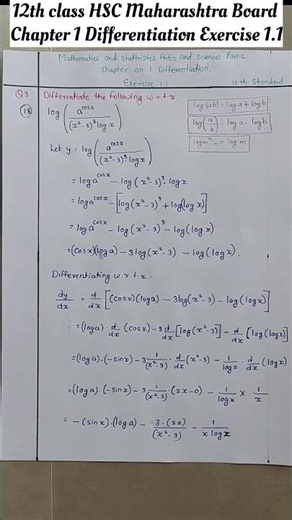 12th class HSC Maharashtra Board
Chapter 1 Differentiation Exercise 1.1
Mathematics and statistics Part-2 and science Part-2
chapter no 1 Differentiation.
Exercise 1.1
12th standard
Q3 Differentiate the following w.r.t x
log(ab) = log a + log b
log(a/b) = log a - log b
log mⁿ = n log m
(18) log (a^cosx / (x²-3)³ log x)
Let y = log (a^cosx / (x²-3)³ log x)
= log a^cosx - log (x²-3)³ · log x
= log a^cosx - [log (x²-3)³ + log(log x)]
= log a^cosx - log (x²-3)³ - log(log x)
= (cos x)(log a) - 3log(x²-3) - log(log x).
Differentiating w.r.t x.
dy/dx = d/dx [(cos x)(log a) - 3log(x²-3) - log(log x)]
= (log a) · d/dx (cos x) - 3 d/dx [log(x²-3)] - d/dx [log(log x)]
= (log a)·(-sin x) - 3 1/(x²-3) · d/dx (x²-3) - 1/log x · d/dx (log x)
= (log a)·(-sin x) - 3 1/(x²-3) · (2x-0) - 1/log x × 1/x
= -(sin x)·(log a) - 3·(2x)/(x²-3) - 1/x log x